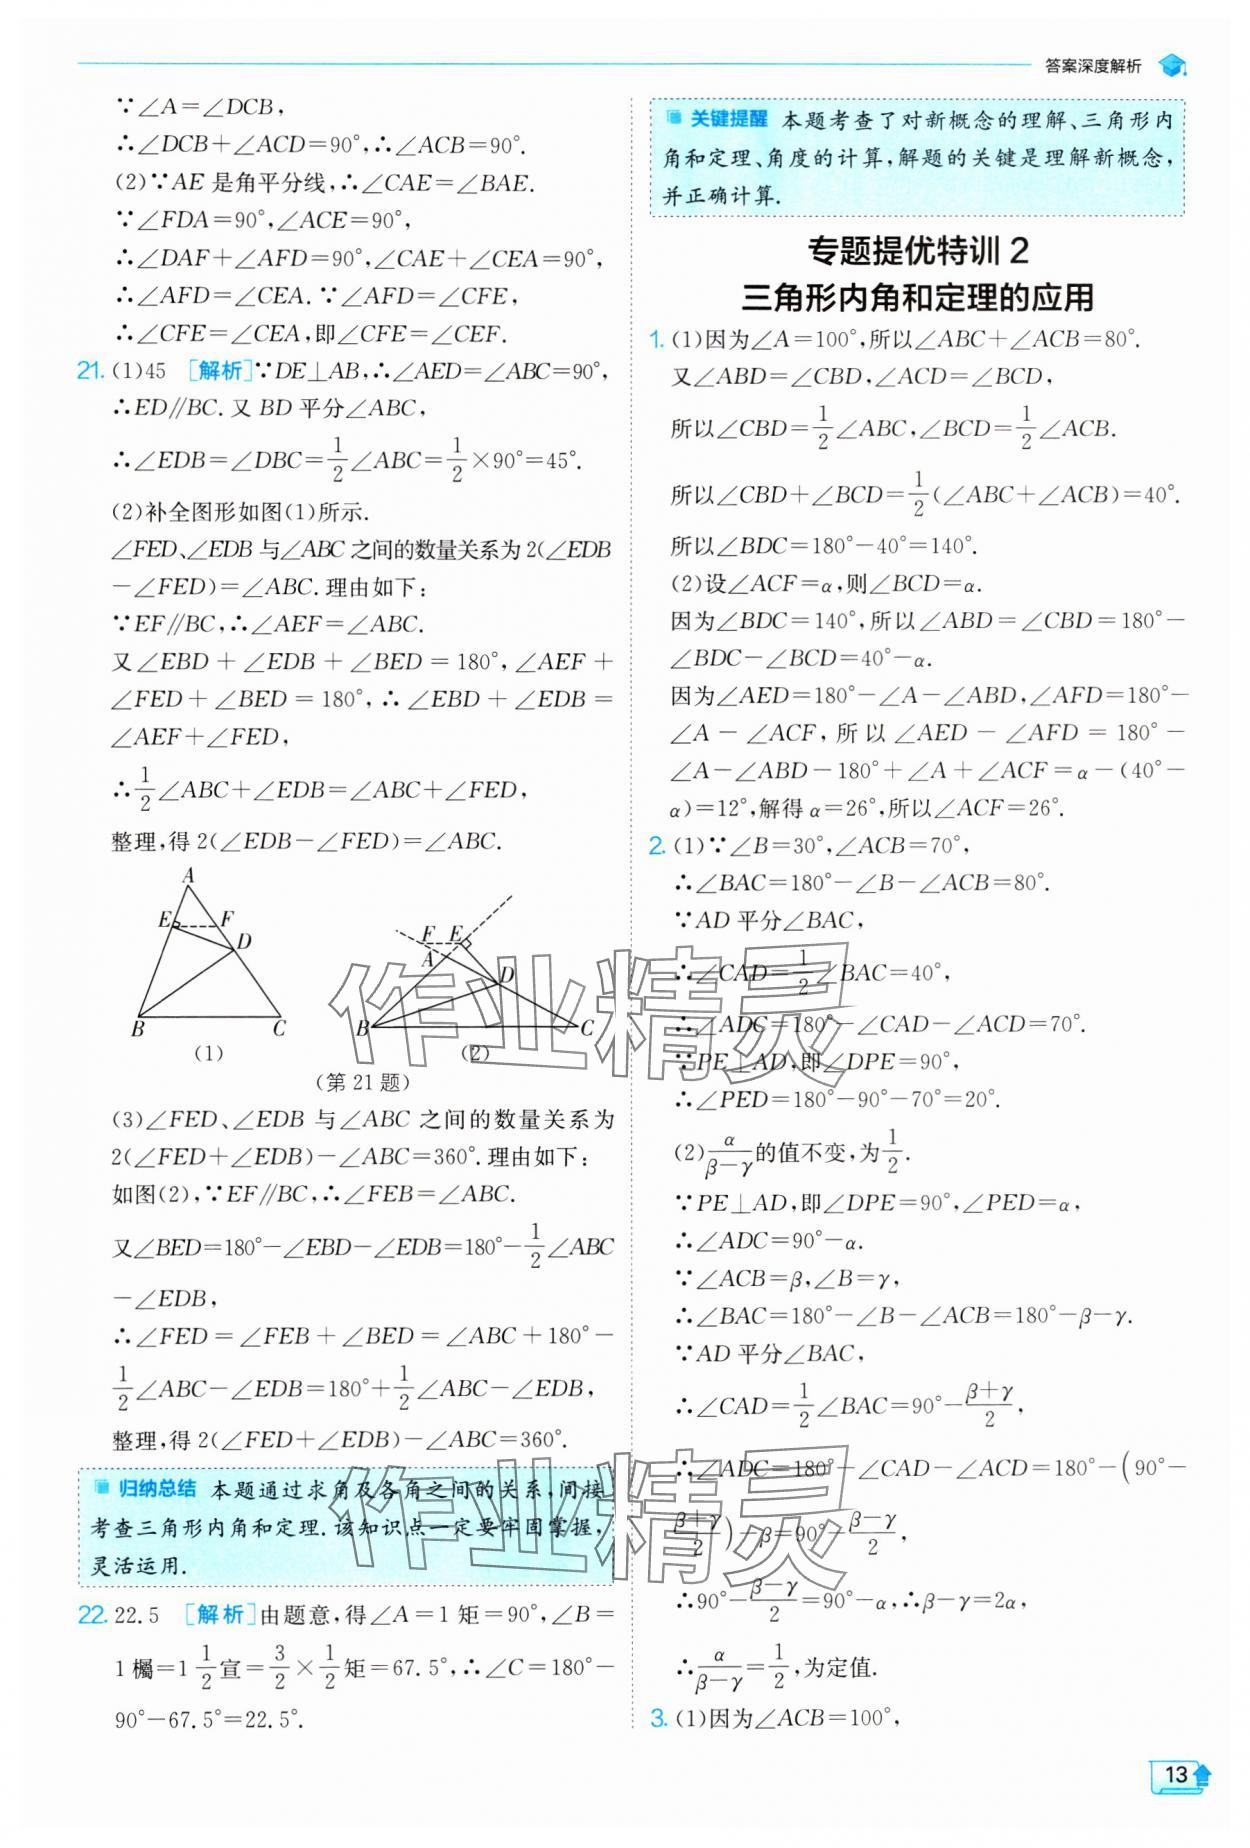 答案深度解析
∵∠A=∠DCB,
∴∠DCB+∠ACD=90°,∴∠ACB=90°.
(2)∵AE是角平分线,∴∠CAE=∠BAE.
∵∠FDA=90°,∠ACE=90°,
∴∠DAF+∠AFD=90°,∠CAE+∠CEA=90°,
∴∠AFD=∠CEA.∵∠AFD=∠CFE,
∴∠CFE=∠CEA,即∠CFE=∠CEF.
21. (1)45 [解析]∵DE⊥AB,∴∠AED=∠ABC=90°,
∴ED∥BC.又BD平分∠ABC,
∴∠EDB=∠DBC=1/2∠ABC=1/2×90°=45°.
(2)补全图形如图(1)所示.
∠FED、∠EDB与∠ABC之间的数量关系为2(∠EDB
-∠FED)=∠ABC.理由如下:
∵EF∥BC,∴∠AEF=∠ABC.
又∠EBD+∠EDB+∠BED=180°,∠AEF+
∠FED+∠BED=180°,∴∠EBD+∠EDB=
∠AEF+∠FED,
∴1/2∠ABC+∠EDB=∠ABC+∠FED,
整理,得2(∠EDB-∠FED)=∠ABC.
A
E F
D
B C
(1)
F E
A
D
B C
(2)
(第21题)
(3)∠FED、∠EDB与∠ABC之间的数量关系为
2(∠FED+∠EDB)-∠ABC=360°.理由如下:
如图(2),∵EF∥BC,∴∠FEB=∠ABC.
又∠BED=180°-∠EBD-∠EDB=180°-1/2∠ABC
-∠EDB,
∴∠FED=∠FEB+∠BED=∠ABC+180°-
1/2∠ABC-∠EDB=180°+1/2∠ABC-∠EDB,
整理,得2(∠FED+∠EDB)-∠ABC=360°.
归纳总结 本题通过求角及各角之间的关系,间接
考查三角形内角和定理.该知识点一定要牢固掌握,
灵活运用.
22. 22.5 [解析]由题意,得∠A=1矩=90°,∠B=
1欘=1 1/2宣=3/2×1/2矩=67.5°,∴∠C=180°-
90°-67.5°=22.5°.
关键提醒 本题考查了对新概念的理解、三角形内
角和定理、角度的计算,解题的关键是理解新概念,
并正确计算.
专题提优特训2
三角形内角和定理的应用
1. (1)因为∠A=100°,所以∠ABC+∠ACB=80°.
又∠ABD=∠CBD,∠ACD=∠BCD,
所以∠CBD=1/2∠ABC,∠BCD=1/2∠ACB.
所以∠CBD+∠BCD=1/2(∠ABC+∠ACB)=40°.
所以∠BDC=180°-40°=140°.
(2)设∠ACF=α,则∠BCD=α.
因为∠BDC=140°,所以∠ABD=∠CBD=180°-
∠BDC-∠BCD=40°-α.
因为∠AED=180°-∠A-∠ABD,∠AFD=180°-
∠A-∠ACF,所以∠AED-∠AFD=180°-
∠A-∠ABD-180°+∠A+∠ACF=α-(40°-
α)=12°,解得α=26°,所以∠ACF=26°.
2. (1)∵∠B=30°,∠ACB=70°,
∴∠BAC=180°-∠B-∠ACB=80°.
∵AD平分∠BAC,
∴∠CAD=1/2∠BAC=40°,
∴∠ADC=180°-∠CAD-∠ACD=70°.
∵PE⊥AD,即∠DPE=90°,
∴∠PED=180°-90°-70°=20°.
(2)α/(β-γ)的值不变,为1/2.
∵PE⊥AD,即∠DPE=90°,∠PED=α,
∴∠ADC=90°-α.
∵∠ACB=β,∠B=γ,
∴∠BAC=180°-∠B-∠ACB=180°-β-γ.
∵AD平分∠BAC,
∴∠CAD=1/2∠BAC=90°-(β+γ)/2,
∴∠ADC=180°-∠CAD-∠ACD=180°-(90°-
(β+γ)/2)-β=90°-(β-γ)/2,
∴90°-(β-γ)/2=90°-α,∴β-γ=2α,
∴α/(β-γ)=1/2,为定值.
3. (1)因为∠ACB=100°,
13
作业精灵
作业精灵